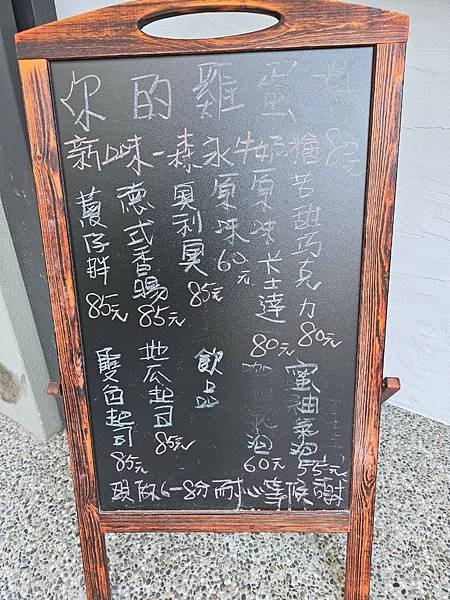 你的雞蛋糕
新口味-森永牛奶糖80元
苦甜巧克力80元
原味卡士達80元
原味60元
奧利奧85元
德式香腸85元
薯仔餅85元
飲品
蜜柚氣泡55元
咖啡氣泡60元
地瓜起司85元
雙色起司85元
現做6-8分耐心等候謝